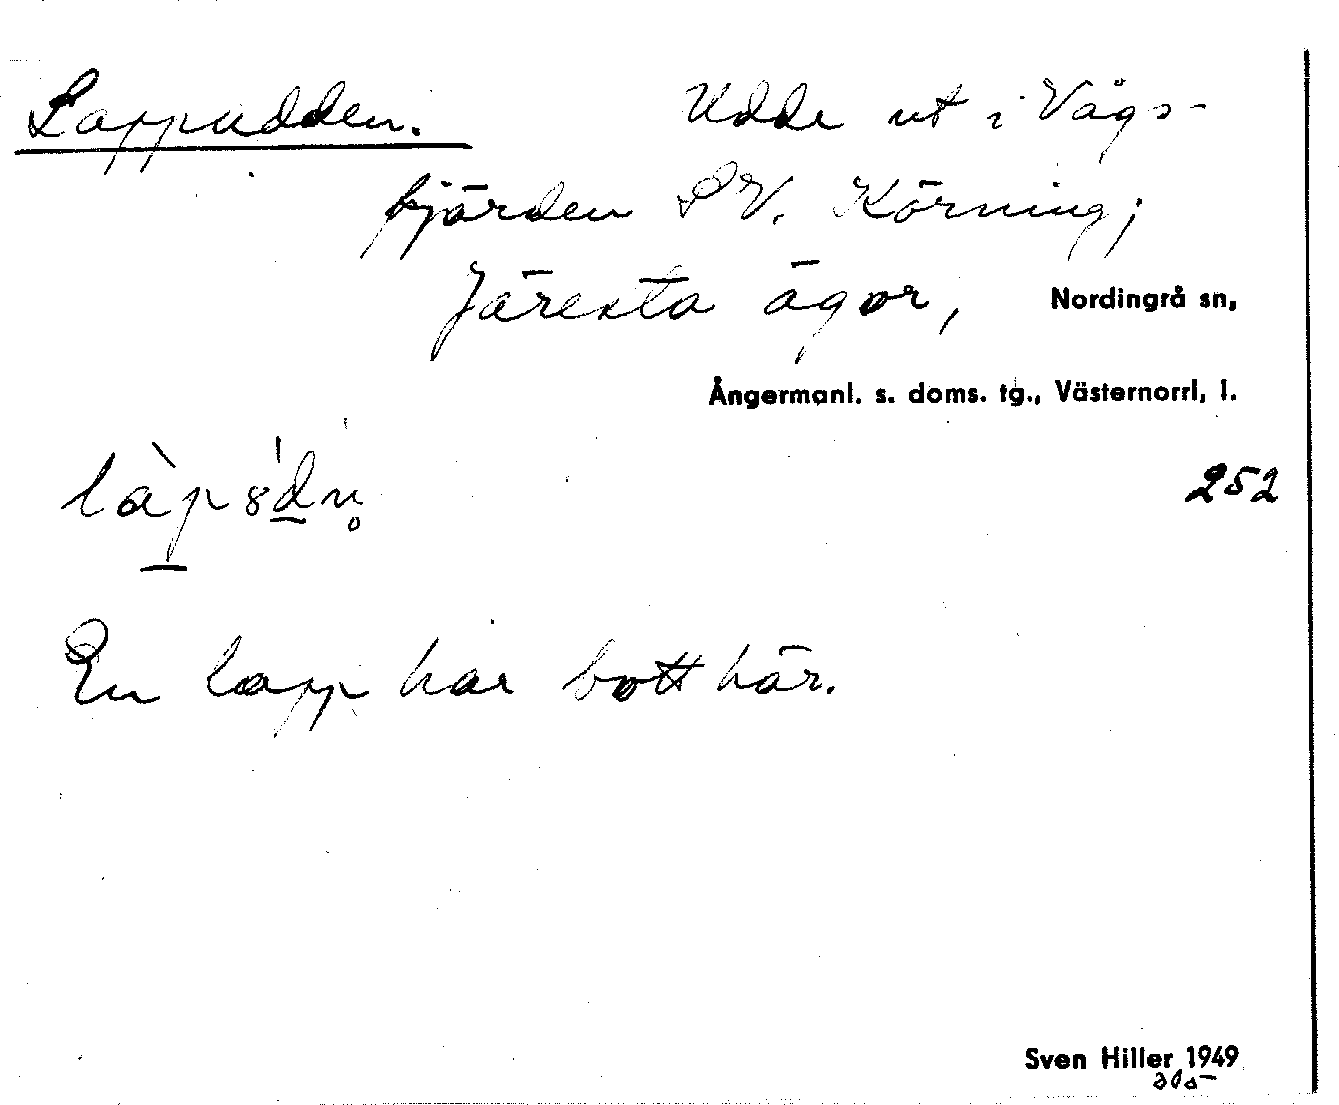 Lappudden. Udde ut i Vågs-
fjärden SV. Körning;
Järesta ägor, Nordingrå sn,
Ångermanl. s. doms. tg., Västernorrl, l.
252
En lapp har bott här.
Sven Hiller 1949